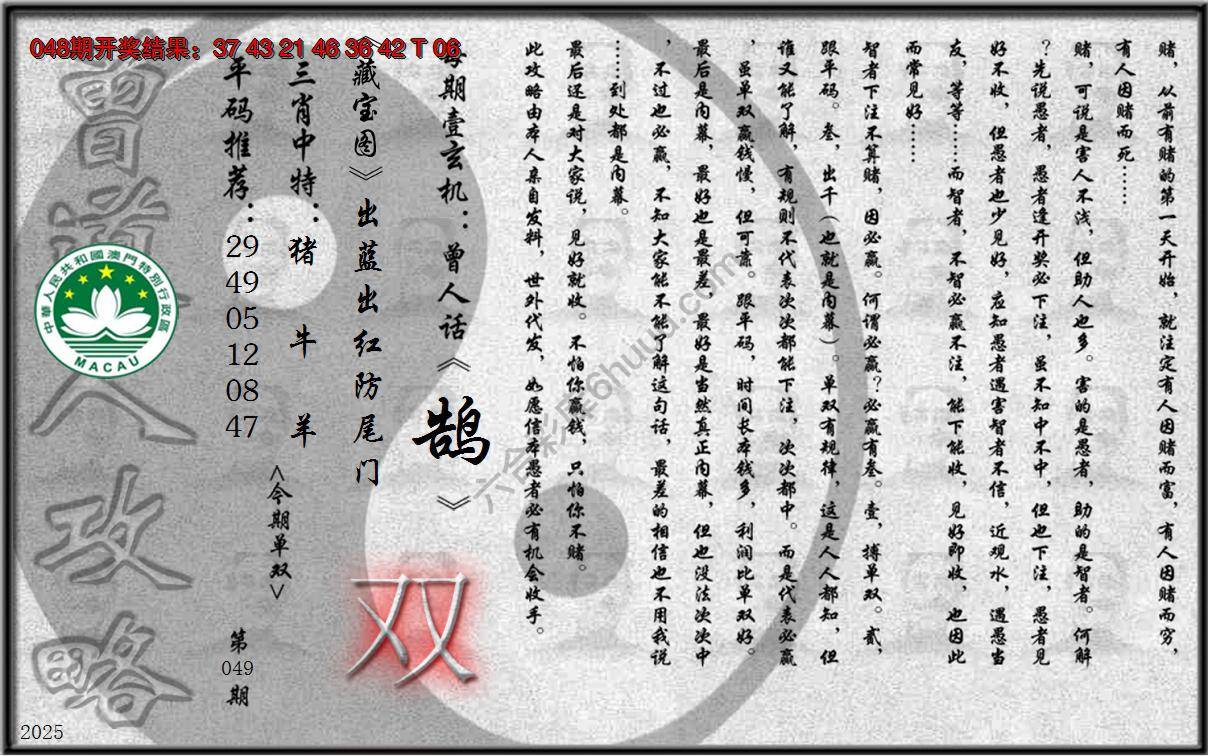 048期开奖结果：37 43 21 46 36 42 T 06
赌，从前有赌的第一天开始，就注定有人因赌而富，有人因赌而穷，
有人因赌而死……
赌，可说是害人不浅，但助人也多。害的是愚者，助的是智者。何解
？先说愚者，愚者逢开奖必下注，虽不知中不中，但也下注，愚者见
好不收，但愚者也少见好，应知愚者遇害智者不信，近观水，遇愚当
友，等等……而智者，不智必赢不注，能下能收，见好即收，也因此
而常见好……
智者下注不算赌，因必赢。何谓必赢？必赢有叁。壹，搏单双。贰，
跟平码。叁，出千（也就是内幕）。单双有规律，这是人人都知，但
谁又能了解，有规则不代表次次都能下注，次次都中。而是代表必赢
，虽单双赢钱慢，但可靠。跟平码，时间长本钱多，利润比单双好。
最后是内幕，最好也是最差，最好是当然真正内幕，但也没法次次中
，不过也必赢，不知大家能不能了解这句话，最差的相信也不用我说
……到处都是内幕。
最后还是对大家说，见好就收。不怕你赢钱，只怕你不赌。
此攻略由本人亲自发料，世外代发，如愿信本愚者必有机会收手。
每期壹玄机：曾人话《鹄》
《藏宝图》出蓝出红防尾门
三肖中特：猪 牛 羊
<今期单双>
双
平码推荐：29 49 05 12 08 47
第049期
曾道人攻略
中華人民共和國澳門特別行政區
MACAU
六合彩库6huuu.com
2025